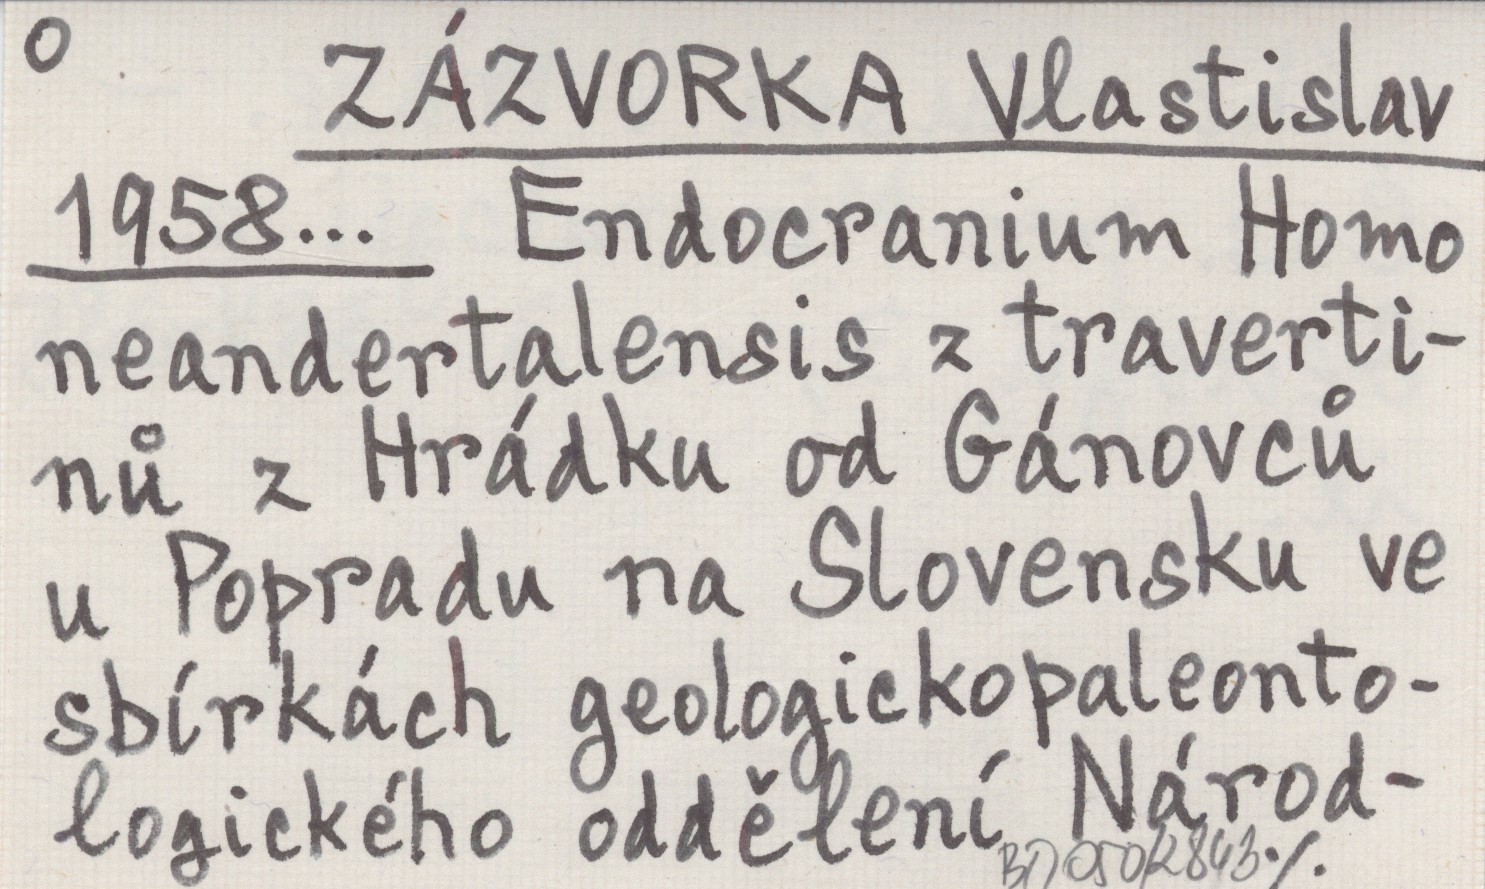 O
ZÁZVORKA Vlastislav
1958... Endocranium Homo
neandertalensis z traverti-
nů z Hrádku od Gánovců
u Popradu na Slovensku ve
sbírkách geologickopaleonto-
logického oddělení Národ-